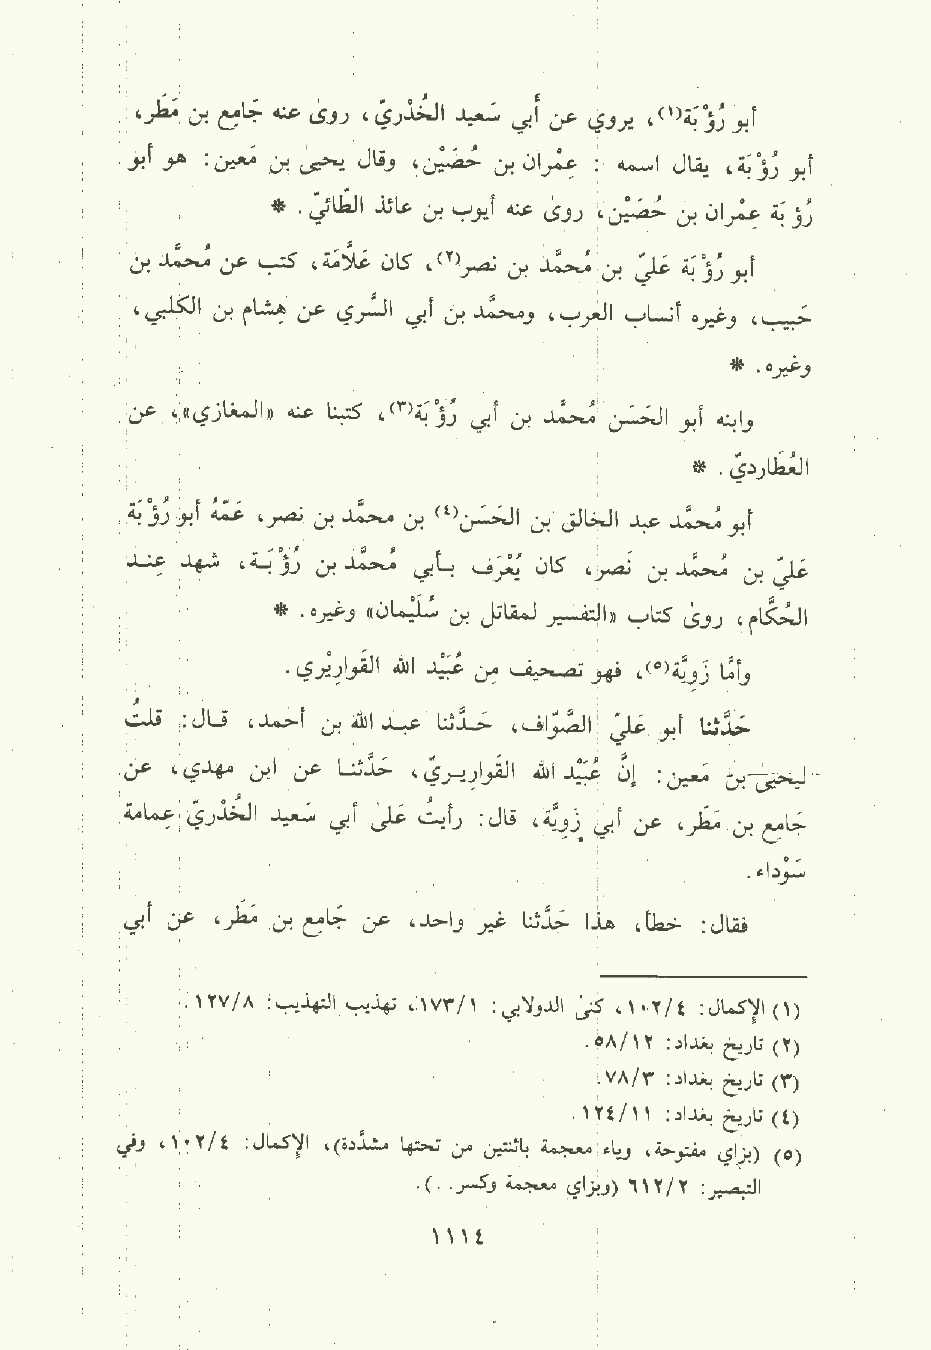 أبو رُؤْبَة(١)، يروي عن أبي سَعيد الخُدْريّ، روىٰ عنه جَامِع بن مَطَر،
أبو رُؤْبَة، يقال اسمه: عِمْران بن حُضَيْن، وقال يحيىٰ بن مَعين: هو أبو
رُؤبَة عِمْران بن حُصَيْن، روىٰ عنه أيوب بن عائذ الطَّائيّ. *
أبو رُؤْبَة عَليّ بن مُحمَّد بن نصر(٢)، كان عَلَّامَة، كتب عن مُحمَّد بن
حَبيب، وغيره أنساب العرب، ومحمَّد بن أبي السَّري عن هِشام بن الكَلْبي،
وغيره. *
وابنه أبو الحَسَن مُحمَّد بن أبي رُؤْبَة(٣)، كتبنا عنه «المغازي»، عن
العُطَارديّ. *
أبو مُحمَّد عبد الخالق بن الحَسَن(٤) بن محمَّد بن نصر، عَمُّهُ أبو رُؤْبَة
عَليّ بن مُحمَّد بن نَصر، كان يُعْرَف بـأبي مُحمَّد بن رُؤْبَـة، شهد عـند
الحُكَّام، روىٰ كتاب «التفسير لمقاتل بن سُلَيْمان» وغيره. *
وأمَّا زَوِيَّة(٥)، فهو تصحيف من عُبَيْد الله القَوارِيْري.
حَدَّثنا أبو عَليّ الصَّوَّاف، حَـدَّثنا عبـد الله بن أحمد، قـال: قلتُ
ليحيىٰ بن مَعين: إنَّ عُبَيْد الله القَوارِيـريّ، حَدَّثنـا عن ابن مهدي، عن
جَامِع بن مَطَر، عن أبي زَوِيَّة، قال: رأيتُ عَلىٰ أبي سَعيد الخُدْريّ عِمامة
سَوْداء.
فقال: خطأ، هذا حَدَّثنا غير واحد، عن جَامِع بن مَطَر، عن أبي
(١) الإكمال: ٤/١٠٢، كنىٰ الدولابي: ١/١٧٣، تهذيب التهذيب: ٨/١٢٧.
(٢) تاريخ بغداد: ١٢/٥٨.
(٣) تاريخ بغداد: ٣/٧٨.
(٤) تاريخ بغداد: ١١/١٢٤.
(٥) (بزاي مفتوحة، وياء معجمة باثنتين من تحتها مشدَّدة)، الإكمال: ٤/١٠٢، وفي
التبصير: ٢/٦١٢ (وبزاي معجمة وكسر. .).
١١١٤